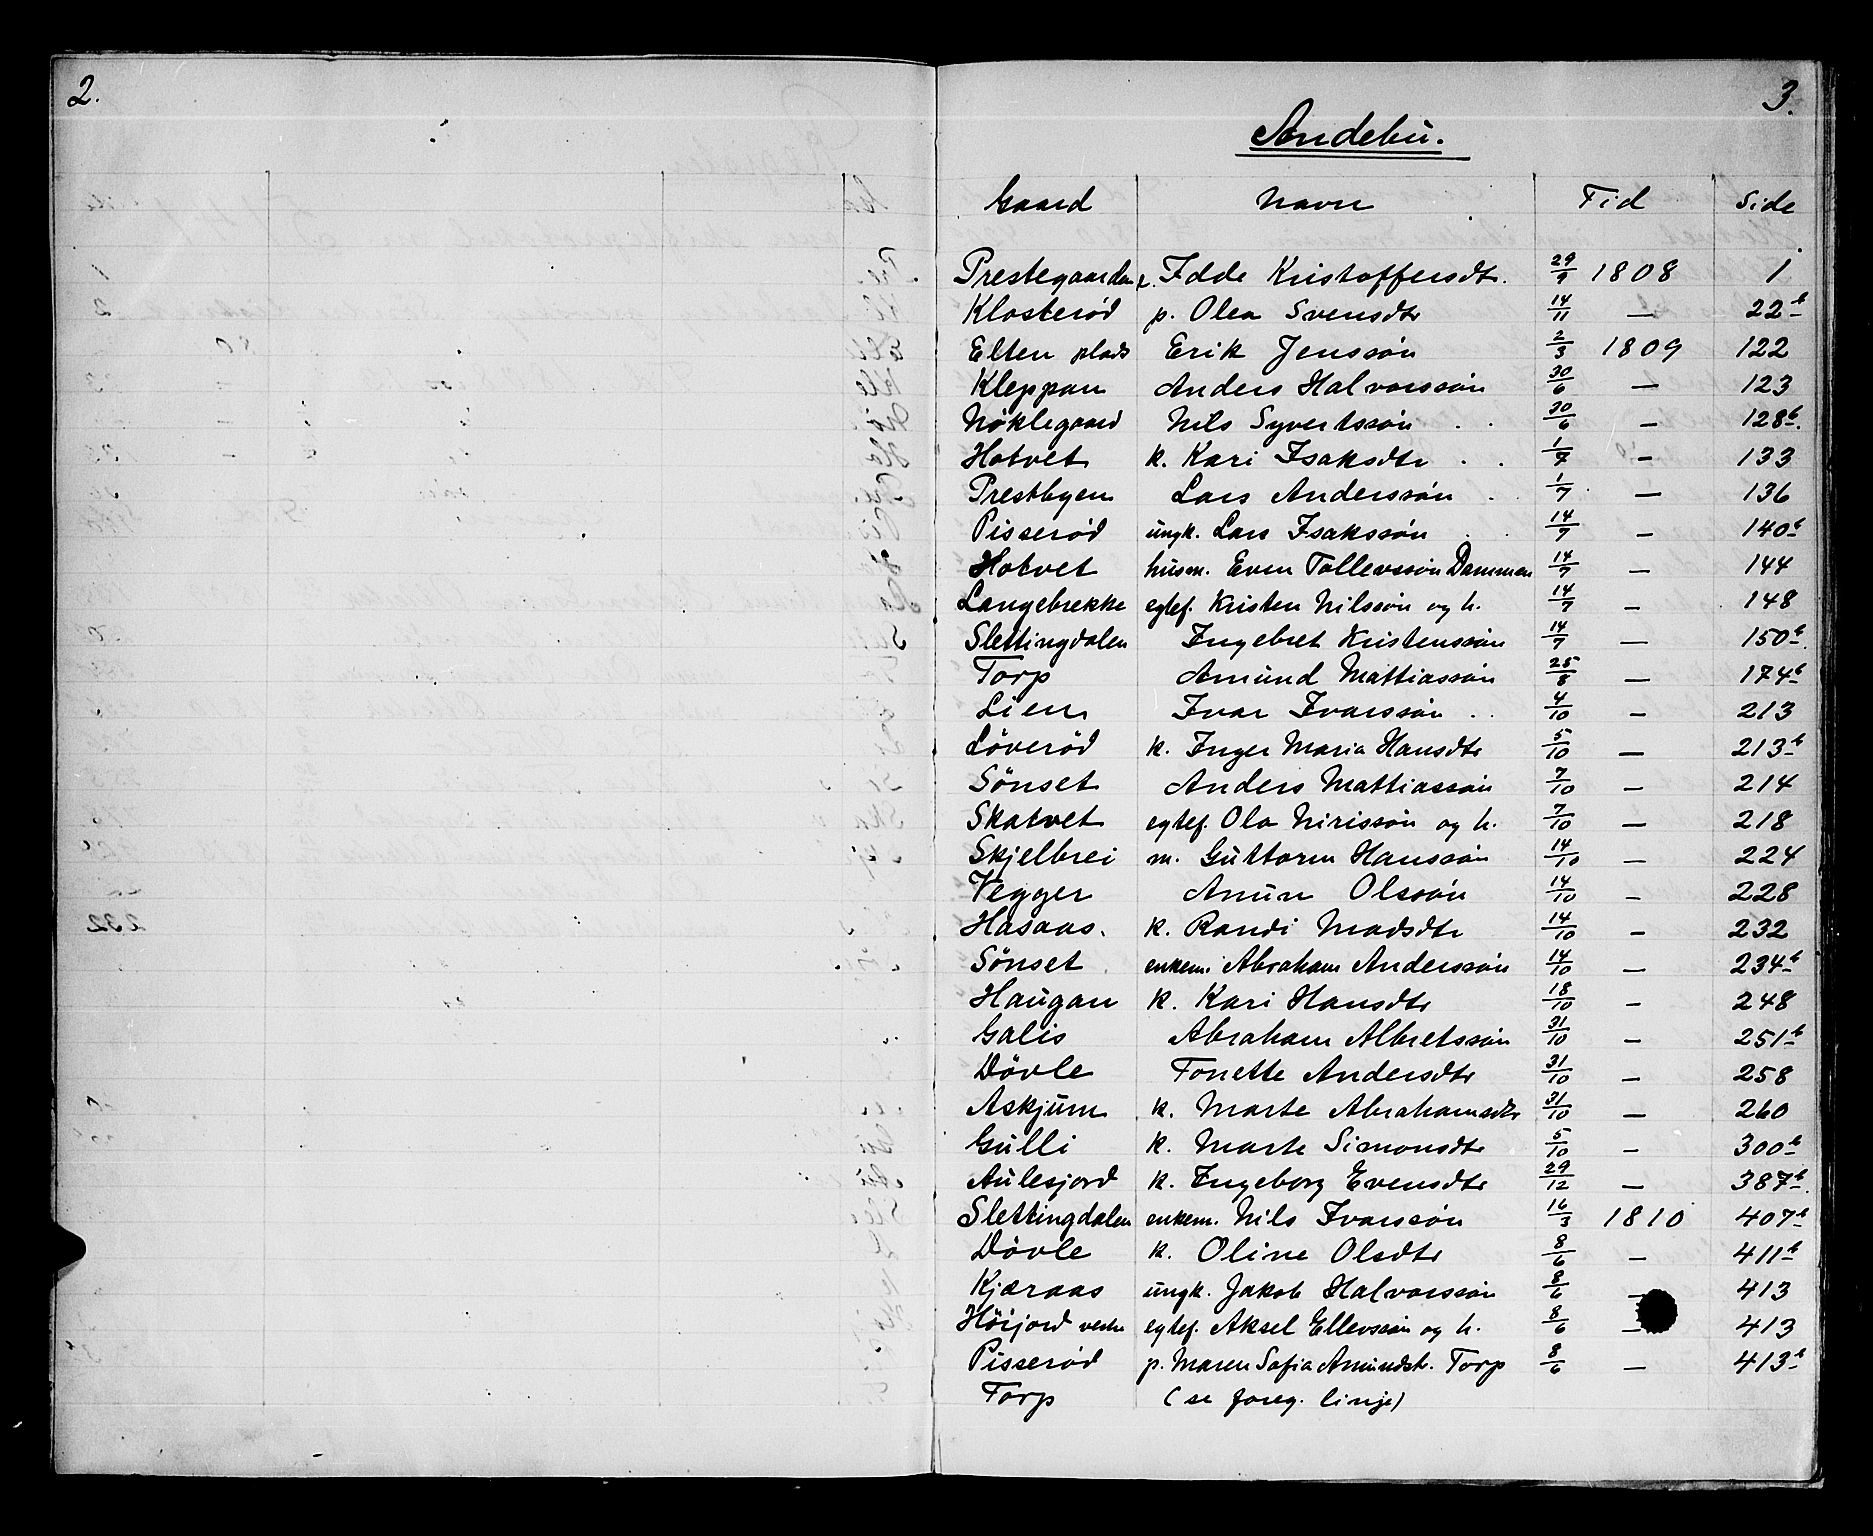 2.
3.
Andebu.
Gaard Navn Tid Side
Prestegaarden p. Idde Kristoffersdtr. 29/9 1808 1
Klosterød p. Olea Svensdtr 14/11 — 22b
Elten plads Erik Jenssøn 2/3 1809 122
Kleppan Anders Halvorssøn 30/6 — 123
Nøklegaard Nils Syvertssøn 30/6 — 128b.
Hotvet k. Kari Isaksdtr 1/7 — 133
Prestbyen Lars Anderssøn 1/7 — 136
Pisserød ungk. Lars Isakssøn 14/7 — 140b
Hotvet husm. Even Tollevssøn Dammen 14/7 — 144
Langebrekke egtef. Kristen Nilssøn og h. 14/7 — 148
Slettingdalen Ingebret Kristenssøn 14/7 — 150b
Torp Amund Mattiassøn 25/8 — 174b
Lien Ivar Ivarssøn 4/10 — 213
Løverød k. Inger Maria Hansdtr 5/10 — 213b
Sønset Anders Mattiassøn 7/10 — 214
Skatvet egtef. Ola Nirissøn og h. 7/10 — 218
Skjelbrei m. Guttorm Hanssøn 14/10 — 224
Vegger Anun Olssøn 14/10 — 228
Hasaas. k. Randi Madsdtr 14/10 — 232
Sønset enkem. Abraham Anderssøn 14/10 — 234b
Haugan k. Kari Hansdtr 18/10 — 248
Galis Abraham Albretssøn 31/10 — 251b
Døvle Tonette Andersdtr 31/10 — 258
Askjum k. Marte Abrahamsdtr 31/10 — 260
Gulli k. Marte Simonsdtr 5/10 — 300b
Aulesjord k. Ingeborg Evensdtr 29/12 — 387b
Slettingdalen enkem. Nils Ivarssøn 16/3 1810 407b
Døvle k. Oline Olsdtr 8/6 — 411b
Kjæraas ungk. Jakob Halvorssøn 8/6 — 413
Høijord vestre egtef. Aksel Ellevssøn og h. 8/6 — 413
Pisserød p. Maren Sofia Amundstr. Torp 8/6 — 413b
Torp (se foreg. linje)